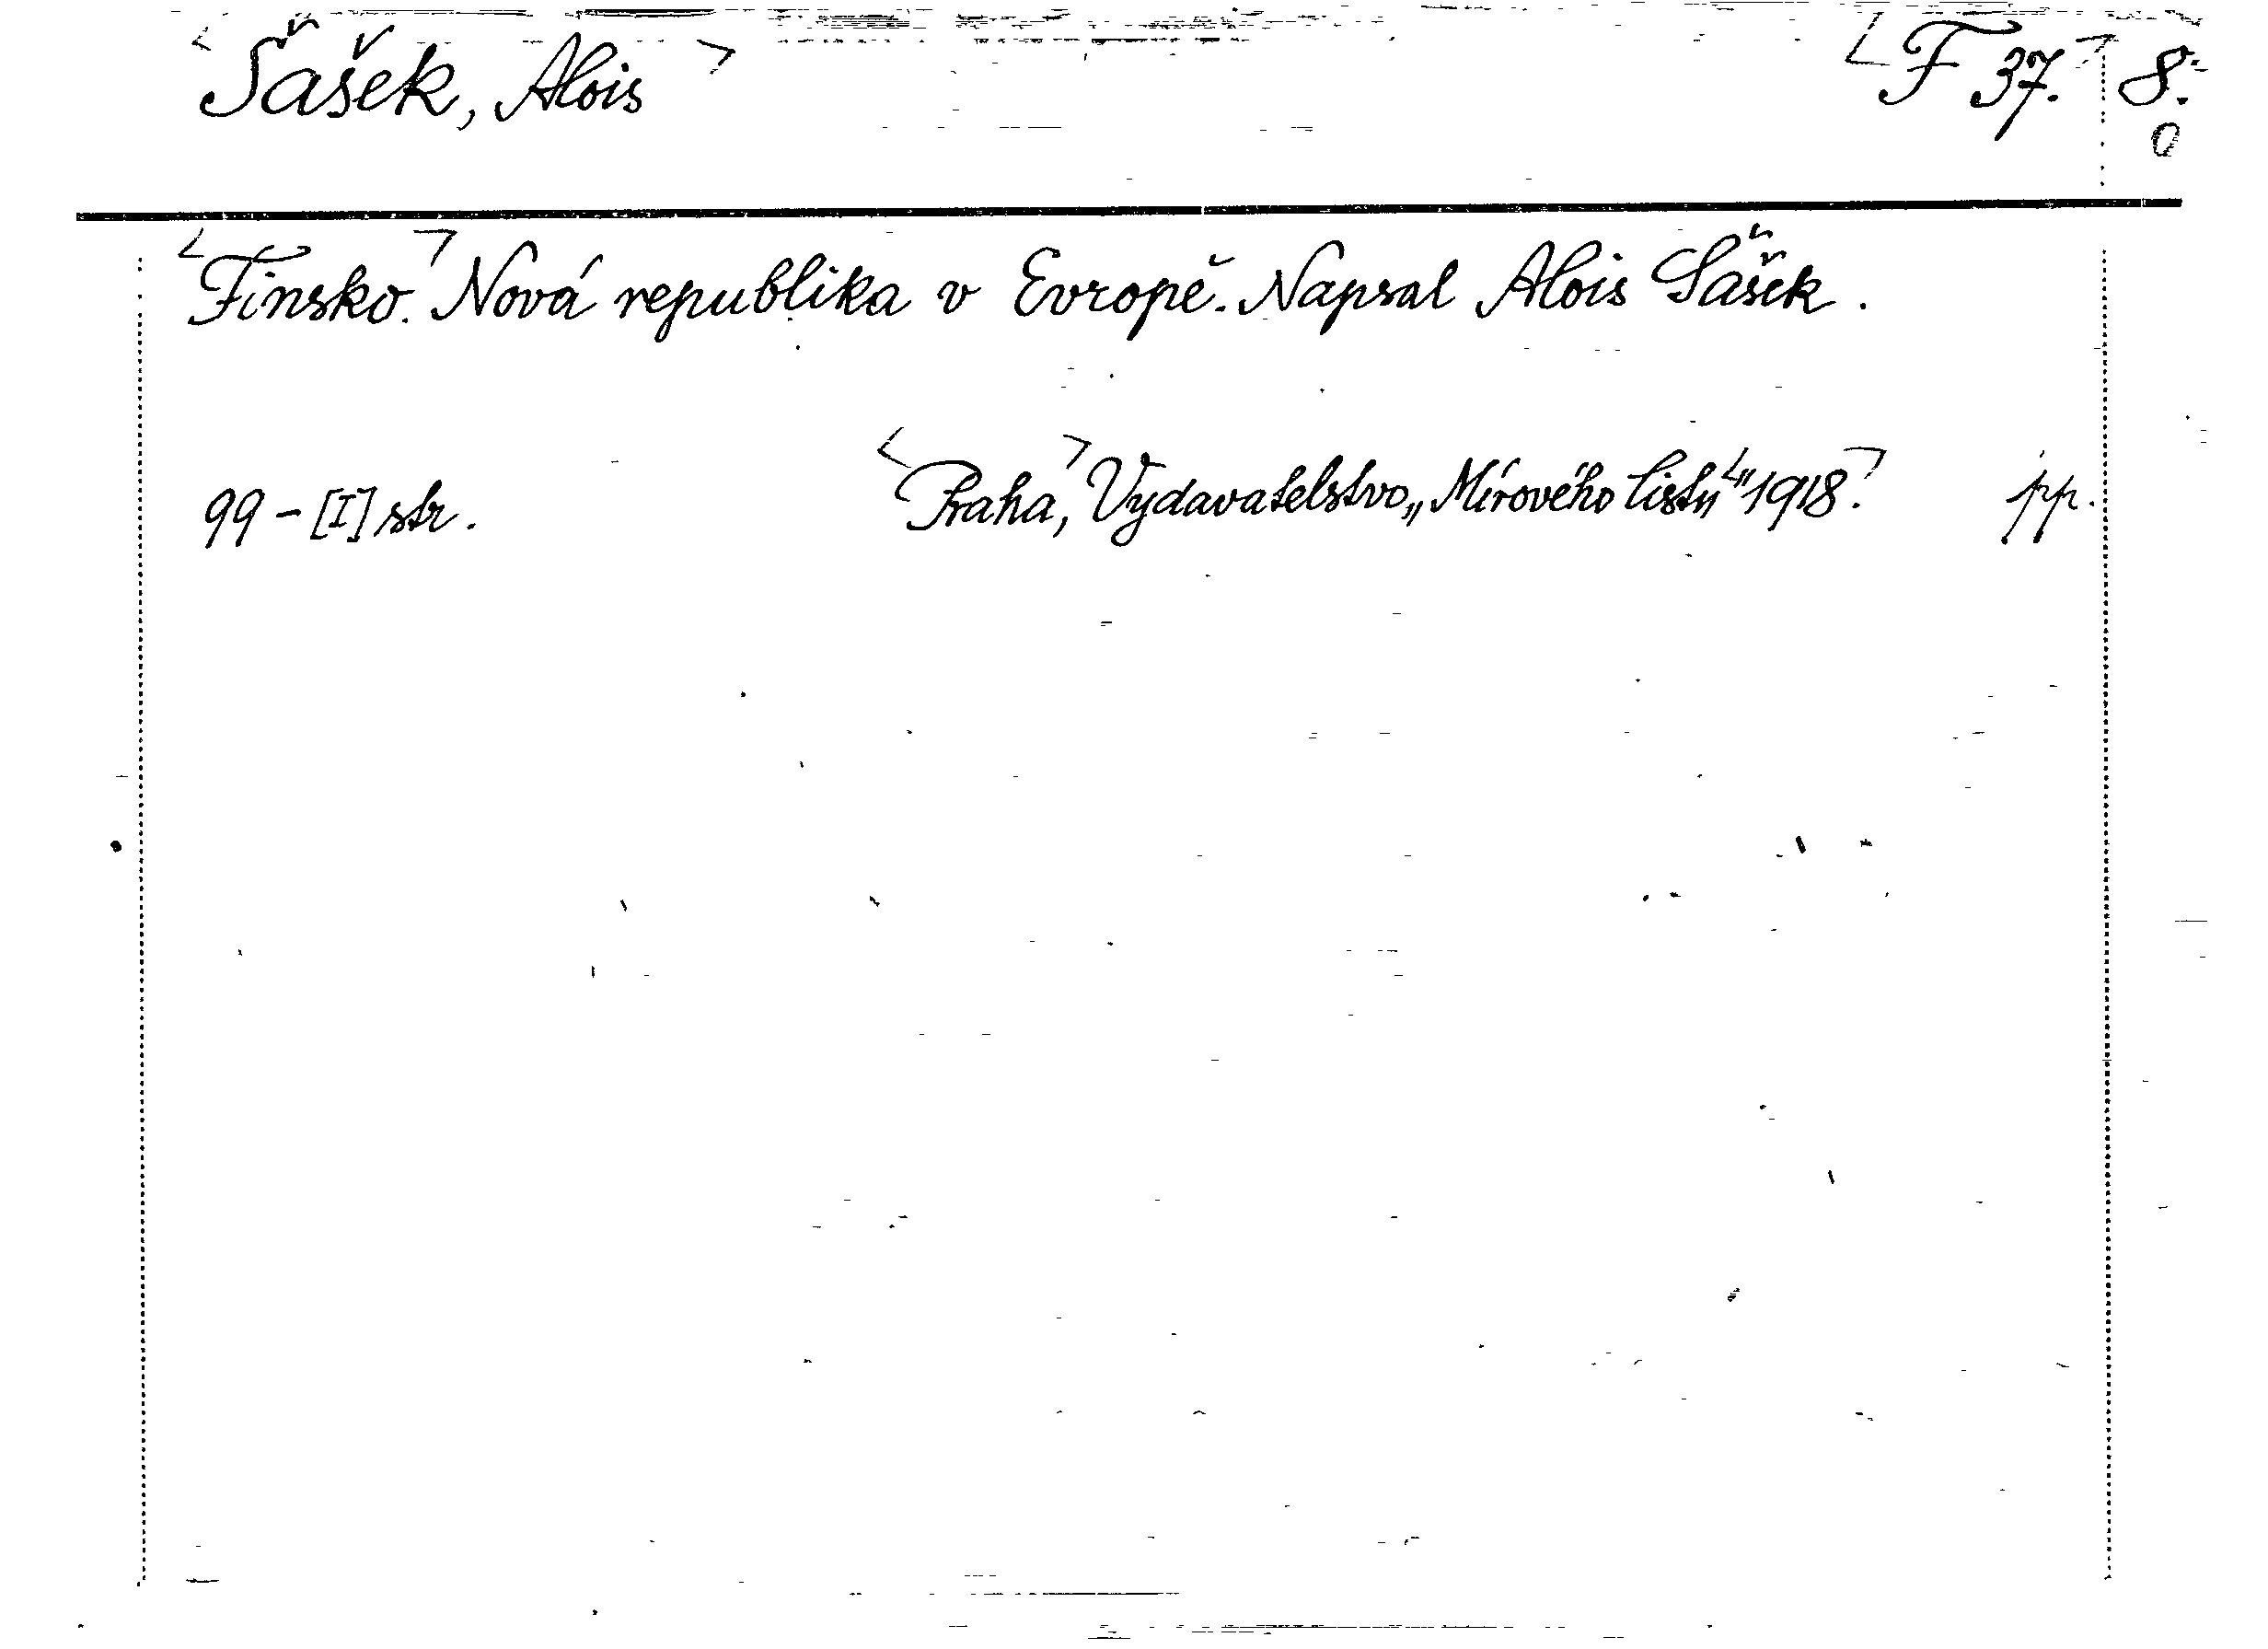 Šašek, Alois F 37. 8.
0
Finsko. Nová republika v Evropě. Napsal Alois Šašek.
99-[I] str. Praha, Vydavatelstvo „Mírového listu" 1918. pp.